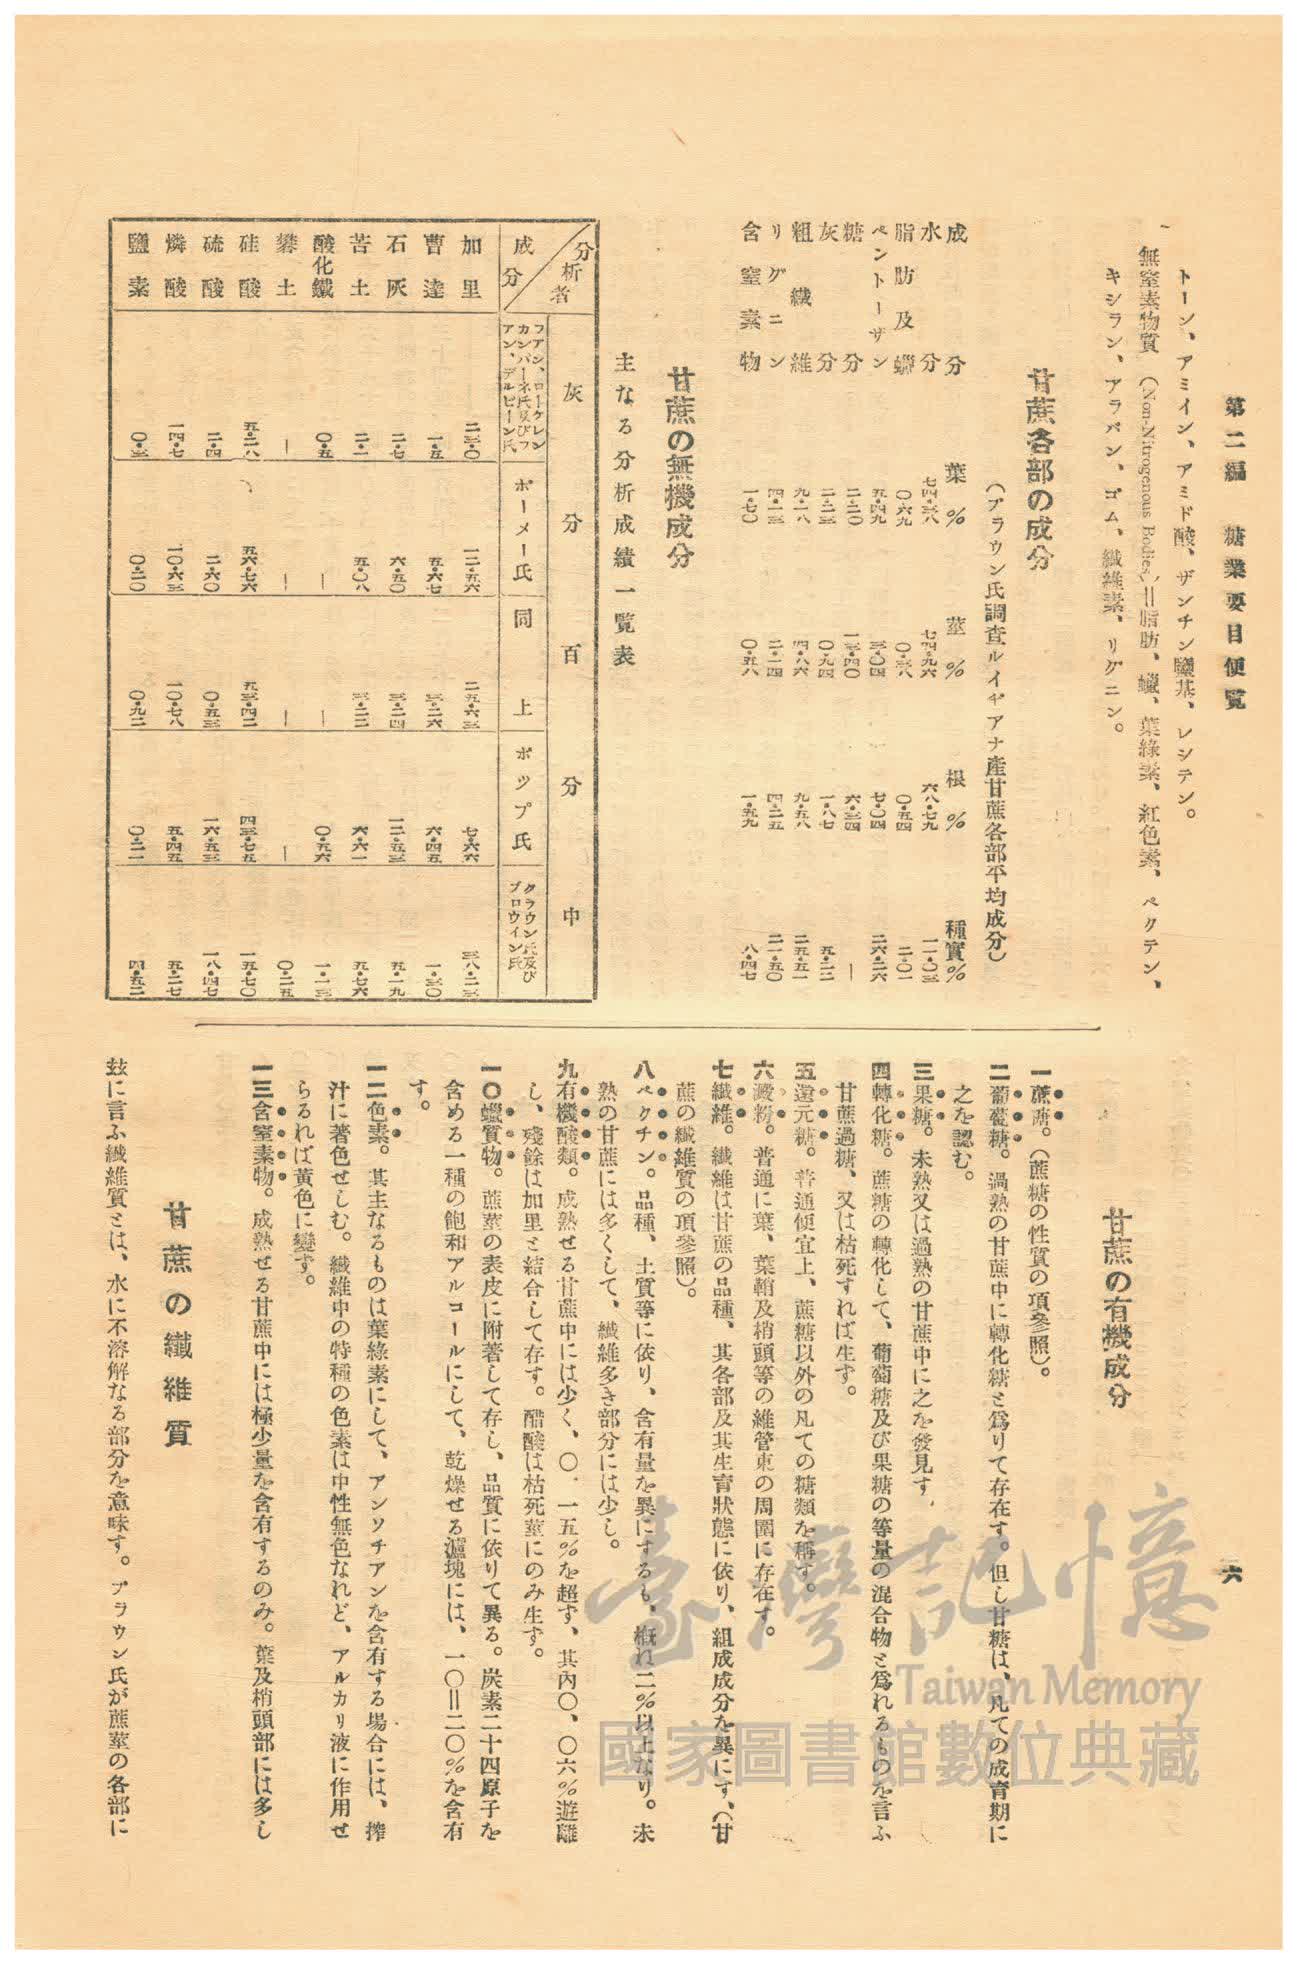 第二編　糖業要目便覧
一六
トーン、アミイン、アミド酸、ザンチン鹽基、レシテン。
無窒素物質　（Non-Nitrogenous Bodies）＝脂肪、蠟、葉綠素、紅色素、ペクテン、
キシラン、アラバン、ゴム、纖維素、リグニン。
甘蔗各部の成分
（ブラウン氏調査ルイヂアナ產甘蔗各部平均成分）
成分　葉％　莖％　根％　種實％
水分　七四・三八　七四・九六　六八・七九　一一・〇三
脂肪及蠟　〇・六九　〇・三八　〇・五四　二・〇一
ペントーザン　五・四九　三・〇四　七・〇四　二六・二六
糖分　二・二〇　一三・四〇　六・三四　—
灰分　二・二三　〇・九四　一・八七　五・二二
粗纖維　九・一八　四・八六　九・五八　二五・五一
リグニン　四・一三　二・一四　四・二五　二一・五〇
含窒素物　一・七〇　〇・五八　一・五九　八・四七
甘蔗の無機成分
主なる分析成績一覽表
分析者　灰分百分中
成分　フアン、ローケレンカンパーネ氏及びフアン、デルビーン氏　ボーメー氏　同上　ポツプ氏　クラウン氏及びブロウイン氏
加里　二三・〇　一二・五六　二五・六三　七・六六　三八・二三
曹達　一・五　五・六七　三・二六　六・四五　一・三〇
石灰　二・七　六・五〇　三・二四　一二・五三　五・一九
苦土　二・一　五・〇八　三・二二　六・六一　五・七六
酸化鐵　〇・五　—　—　〇・五六　一・一三
礬土　—　—　—　—　〇・二五
硅酸　五・二八　五六・七六　五三・四二　四三・七五　一五・七〇
硫酸　二・四　二・六〇　〇・五三　一六・五三　一八・四七
燐酸　一四・七　一〇・六三　一〇・七八　五・四五　五・二七
鹽素　〇・三　〇・二〇　〇・九二　〇・二一　四・五二
甘蔗の有機成分
一蔗糖。（蔗糖の性質の項參照）。
二葡萄糖。過熟の甘蔗中に轉化糖と爲りて存在す。但し甘糖は、凡ての成育期に
之を認む。
三果糖。未熟又は過熟の甘蔗中に之を發見す。
四轉化糖。蔗糖の轉化して、葡萄糖及び果糖の等量の混合物と爲れるものを言ふ
甘蔗過糖、又は枯死すれば生す。
五還元糖。普通便宜上、蔗糖以外の凡ての糖類を稱す。
六澱粉。普通に葉、葉鞘及梢頭等の維管束の周圍に存在す。
七纖維。纖維は甘蔗の品種、其各部及其生育狀態に依り、組成成分を異にす、（甘
蔗の纖維質の項參照）。
八ペクチン。品種、土質等に依り、含有量を異にするも、概ね二％以上なり。未
熟の甘蔗には多くして、纖維多き部分には少し。
九有機酸類。成熟せる甘蔗中には少く、〇．一五％を超す、其內〇、〇六％遊離
し、殘餘は加里と結合して存す。醋酸は枯死莖にのみ生す。
一〇蠟質物。蔗莖の表皮に附著して存し、品質に依りて異る。炭素二十四原子を
含める一種の飽和アルコールにして、乾燥せる濾塊には、一〇＝二〇％を含有
す。
一二色素。其主なるものは葉綠素にして、アンソチアンを含有する場合には、搾
汁に著色せしむ。纖維中の特種の色素は中性無色なれど、アルカリ液に作用せ
らるれば黃色に變す。
一三含窒素物。成熟せる甘蔗中には極少量を含有するのみ。葉及梢頭部には多し
甘蔗の纖維質
玆に言ふ纖維質とは、水に不溶解なる部分を意味す。ブラウン氏が蔗莖の各部に
臺灣記憶
Taiwan Memory
國家圖書館數位典藏